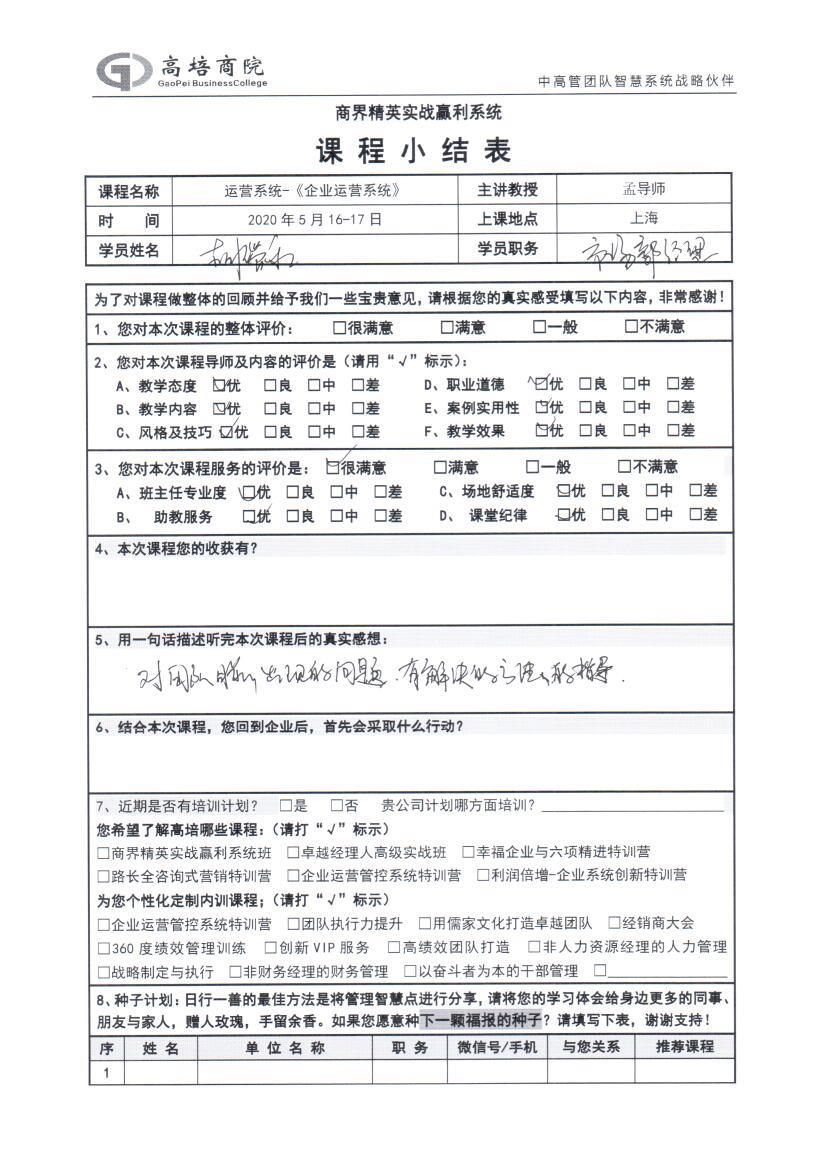 高培商院
GaoPei BusinessCollege
中高管团队智慧系统战略伙伴
商界精英实战赢利系统
课程小结表
课程名称 运营系统-《企业运营系统》 主讲教授 孟导师
时 间 2020年5月16-17日 上课地点 上海
学员姓名 学员职务 市场部经理
为了对课程做整体的回顾并给予我们一些宝贵意见,请根据您的真实感受填写以下内容,非常感谢!
1、您对本次课程的整体评价: □很满意 □满意 □一般 □不满意
2、您对本次课程导师及内容的评价是(请用“√”标示):
A、教学态度 ☑优 □良 □中 □差 D、职业道德 ☑优 □良 □中 □差
B、教学内容 ☑优 □良 □中 □差 E、案例实用性 ☑优 □良 □中 □差
C、风格及技巧 ☑优 □良 □中 □差 F、教学效果 ☑优 □良 □中 □差
3、您对本次课程服务的评价是: ☑很满意 □满意 □一般 □不满意
A、班主任专业度 ☑优 □良 □中 □差 C、场地舒适度 ☑优 □良 □中 □差
B、 助教服务 ☑优 □良 □中 □差 D、 课堂纪律 ☑优 □良 □中 □差
4、本次课程您的收获有?
5、用一句话描述听完本次课程后的真实感想:
对团队 出现的问题、有解决的方法 的指导.
6、结合本次课程,您回到企业后,首先会采取什么行动?
7、近期是否有培训计划? □是 □否 贵公司计划哪方面培训?
您希望了解高培哪些课程:(请打“√”标示)
□商界精英实战赢利系统班 □卓越经理人高级实战班 □幸福企业与六项精进特训营
□路长全咨询式营销特训营 □企业运营管控系统特训营 □利润倍增-企业系统创新特训营
为您个性化定制内训课程;(请打“√”标示)
□企业运营管控系统特训营 □团队执行力提升 □用儒家文化打造卓越团队 □经销商大会
□360度绩效管理训练 □创新VIP服务 □高绩效团队打造 □非人力资源经理的人力管理
□战略制定与执行 □非财务经理的财务管理 □以奋斗者为本的干部管理 □
8、种子计划:日行一善的最佳方法是将管理智慧点进行分享,请将您的学习体会给身边更多的同事、
朋友与家人,赠人玫瑰,手留余香。如果您愿意种下一颗福报的种子?请填写下表,谢谢支持!
序 姓名 单位名称 职务 微信号/手机 与您关系 推荐课程
1